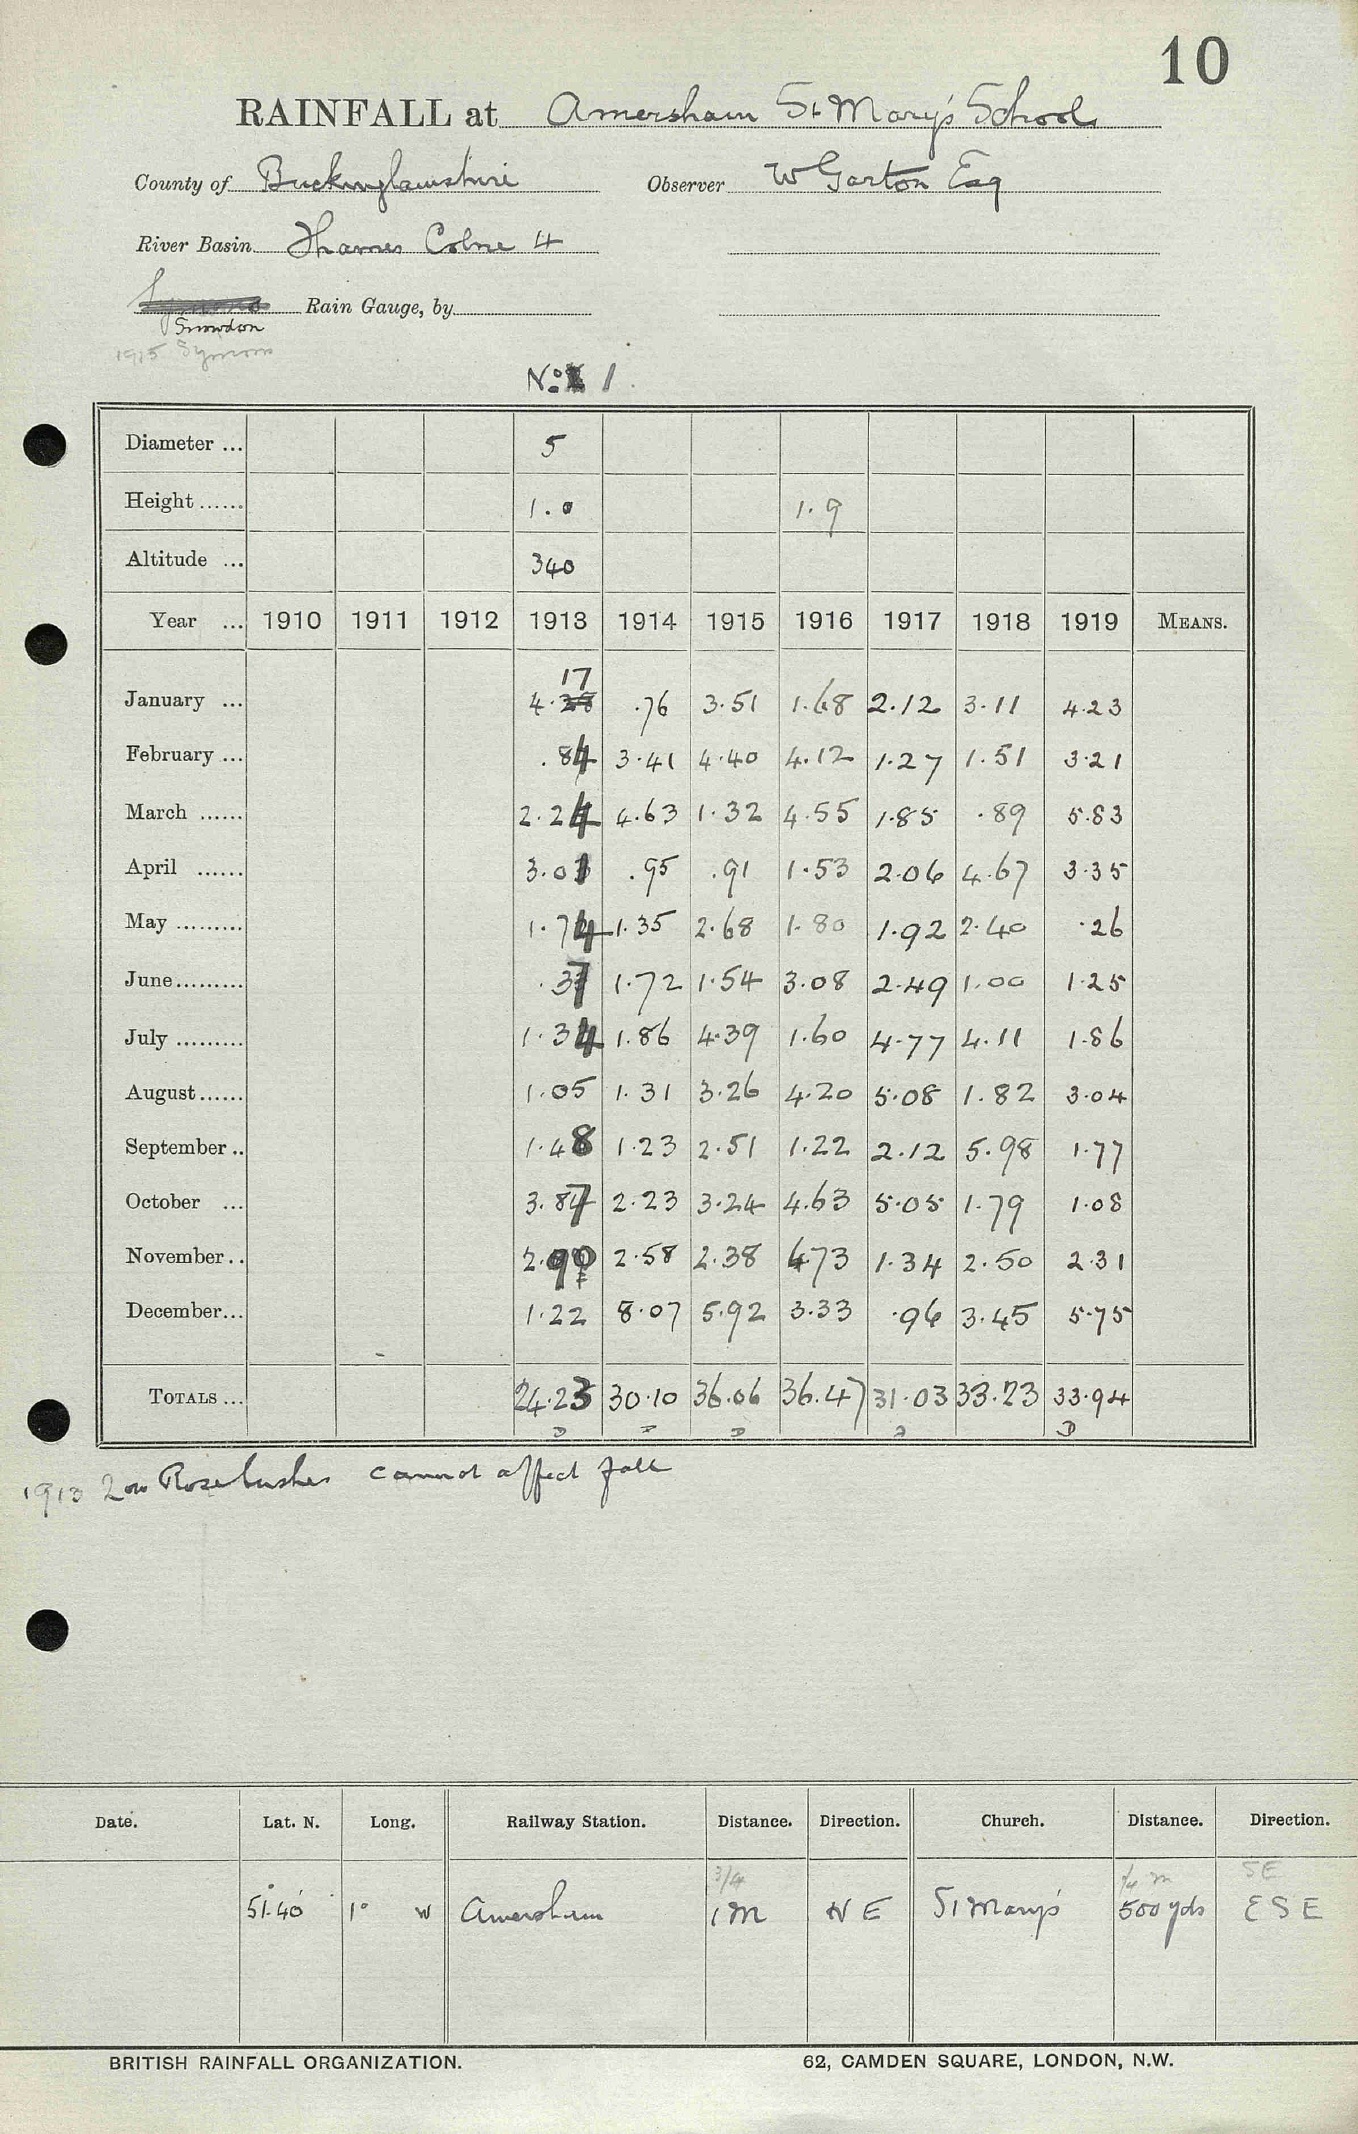 10
RAINFALL at Amersham St Mary's School
County of Buckinghamshire Observer W Garton Esq
River Basin Thames Colne 4
Symons Rain Gauge, by
Snowdon
1915 Symons
No. 1
Diameter ... 5
Height ...... 1.0 1.9
Altitude ... 340
Year ... 1910 1911 1912 1913 1914 1915 1916 1917 1918 1919 MEANS.
17
January ... 4.28 .76 3.51 1.68 2.12 3.11 4.23
February ... .84 3.41 4.40 4.12 1.27 1.51 3.21
March ...... 2.24 4.63 1.32 4.55 1.85 .89 5.83
April ...... 3.01 .95 .91 1.53 2.06 4.67 3.35
May ......... 1.74 1.35 2.68 1.80 1.92 2.40 .26
June ......... .37 1.72 1.54 3.08 2.49 1.00 1.25
July ......... 1.34 1.86 4.39 1.60 4.77 4.11 1.86
August ...... 1.05 1.31 3.26 4.20 5.08 1.82 3.04
September .. 1.48 1.23 2.51 1.22 2.12 5.98 1.77
October ... 3.87 2.23 3.24 4.63 5.05 1.79 1.08
November .. 2.90 2.58 2.38 4.73 1.34 2.50 2.31
December ... 1.22 8.07 5.92 3.33 .96 3.45 5.75
TOTALS ... 24.23 30.10 36.06 36.47 31.03 33.23 33.94
1913 Low Rosebushes cannot affect fall
Date. Lat. N. Long. Railway Station. Distance. Direction. Church. Distance. Direction.
3/4 1/4 m SE
51°40' 1° W Amersham 1 M N E St Mary's 500 yds E S E
BRITISH RAINFALL ORGANIZATION. 62, CAMDEN SQUARE, LONDON, N.W.